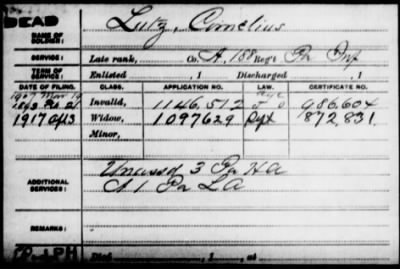 DEAD
NAME OF SOLDIER: Lutz, Cornelius
SERVICE: Late rank, Co. A, 188 Reg't Pa Inf
TERM OF SERVICE: Enlisted , 1 Discharged , 1
DATE OF FILING. CLASS. APPLICATION NO. LAW. CERTIFICATE NO.
Invalid, 1146,512 986,604
1917 Ap 3 Widow, 1097629 872,831.
Minor,
ADDITIONAL SERVICES: Unassd 3 Pa HA
A 1 Pa LA
REMARKS:
Died , 1 , at